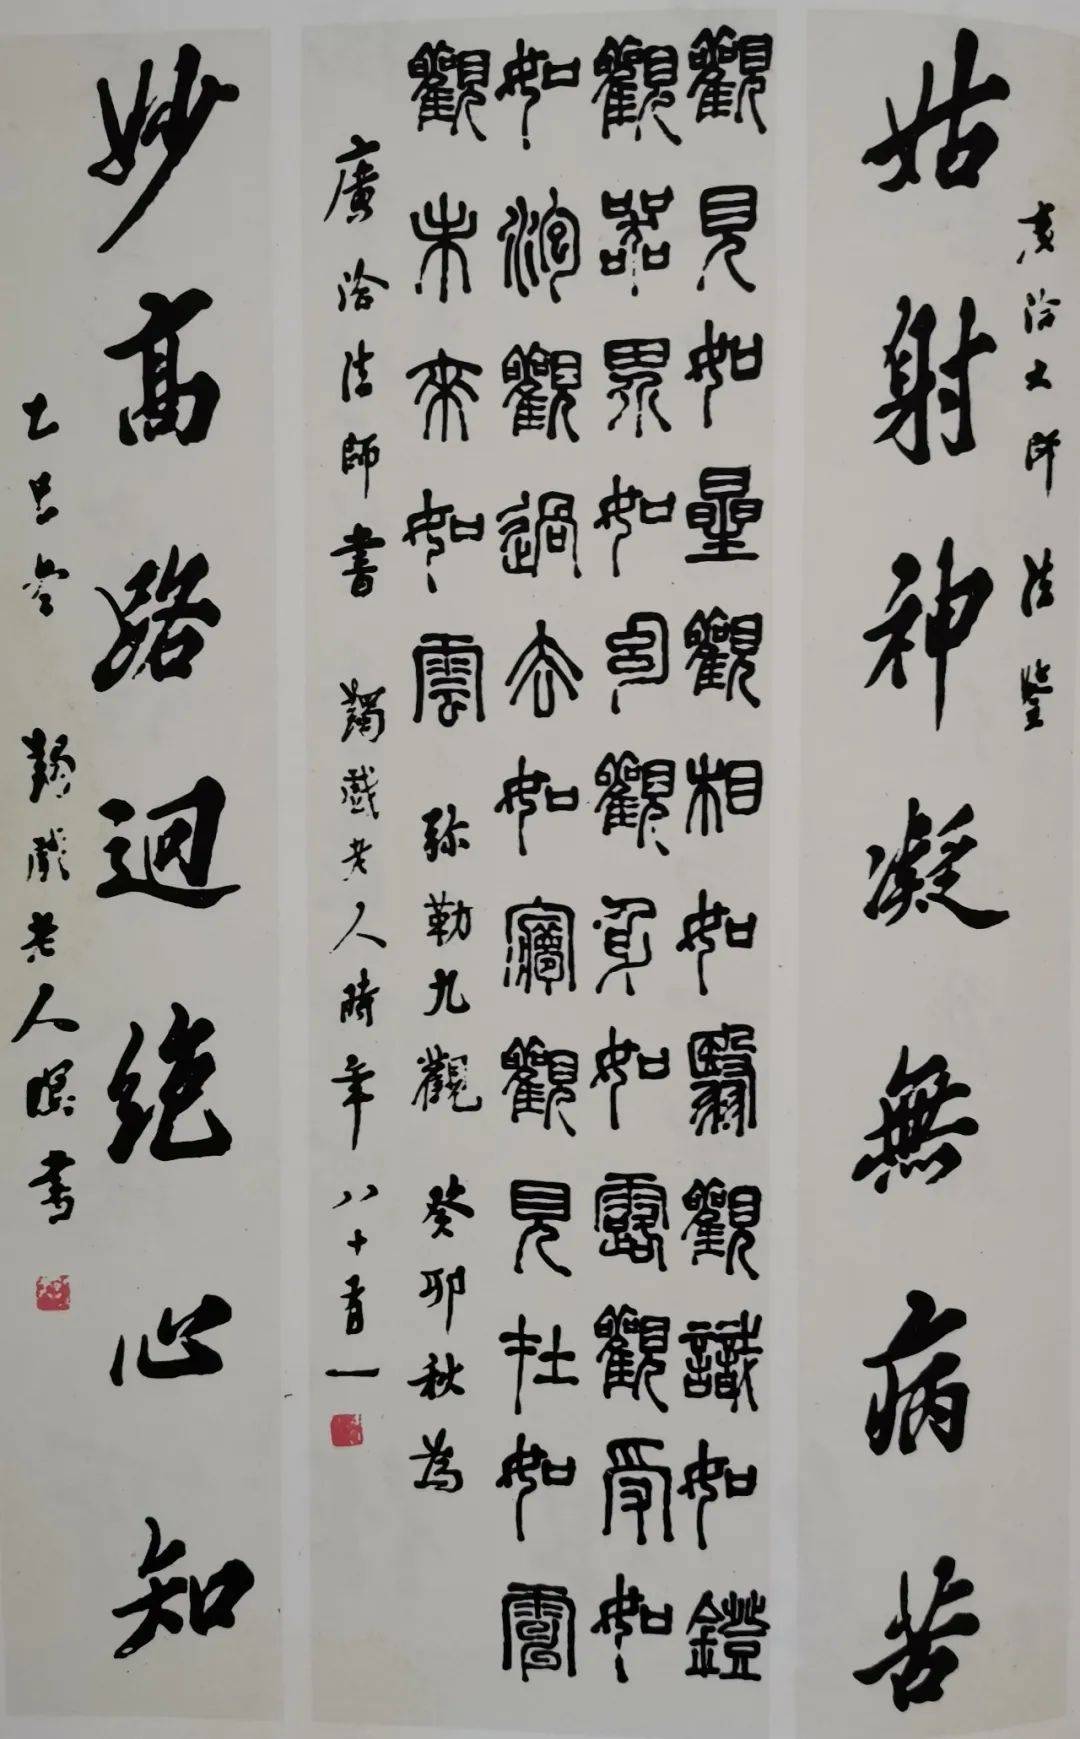 廣洽大師 法鑒
姑射神凝無病苦
觀見如星觀相如翳觀識如鐙
觀器界如幻觀身如露觀受如
如泡觀過去如夢觀見在如電
觀未來如雲 弥勒九觀 癸卯秋為
廣洽法師書 蠲戲老人時年八十有一
妙高路迥絕心知
乙巳冬 蠲戲老人暝書